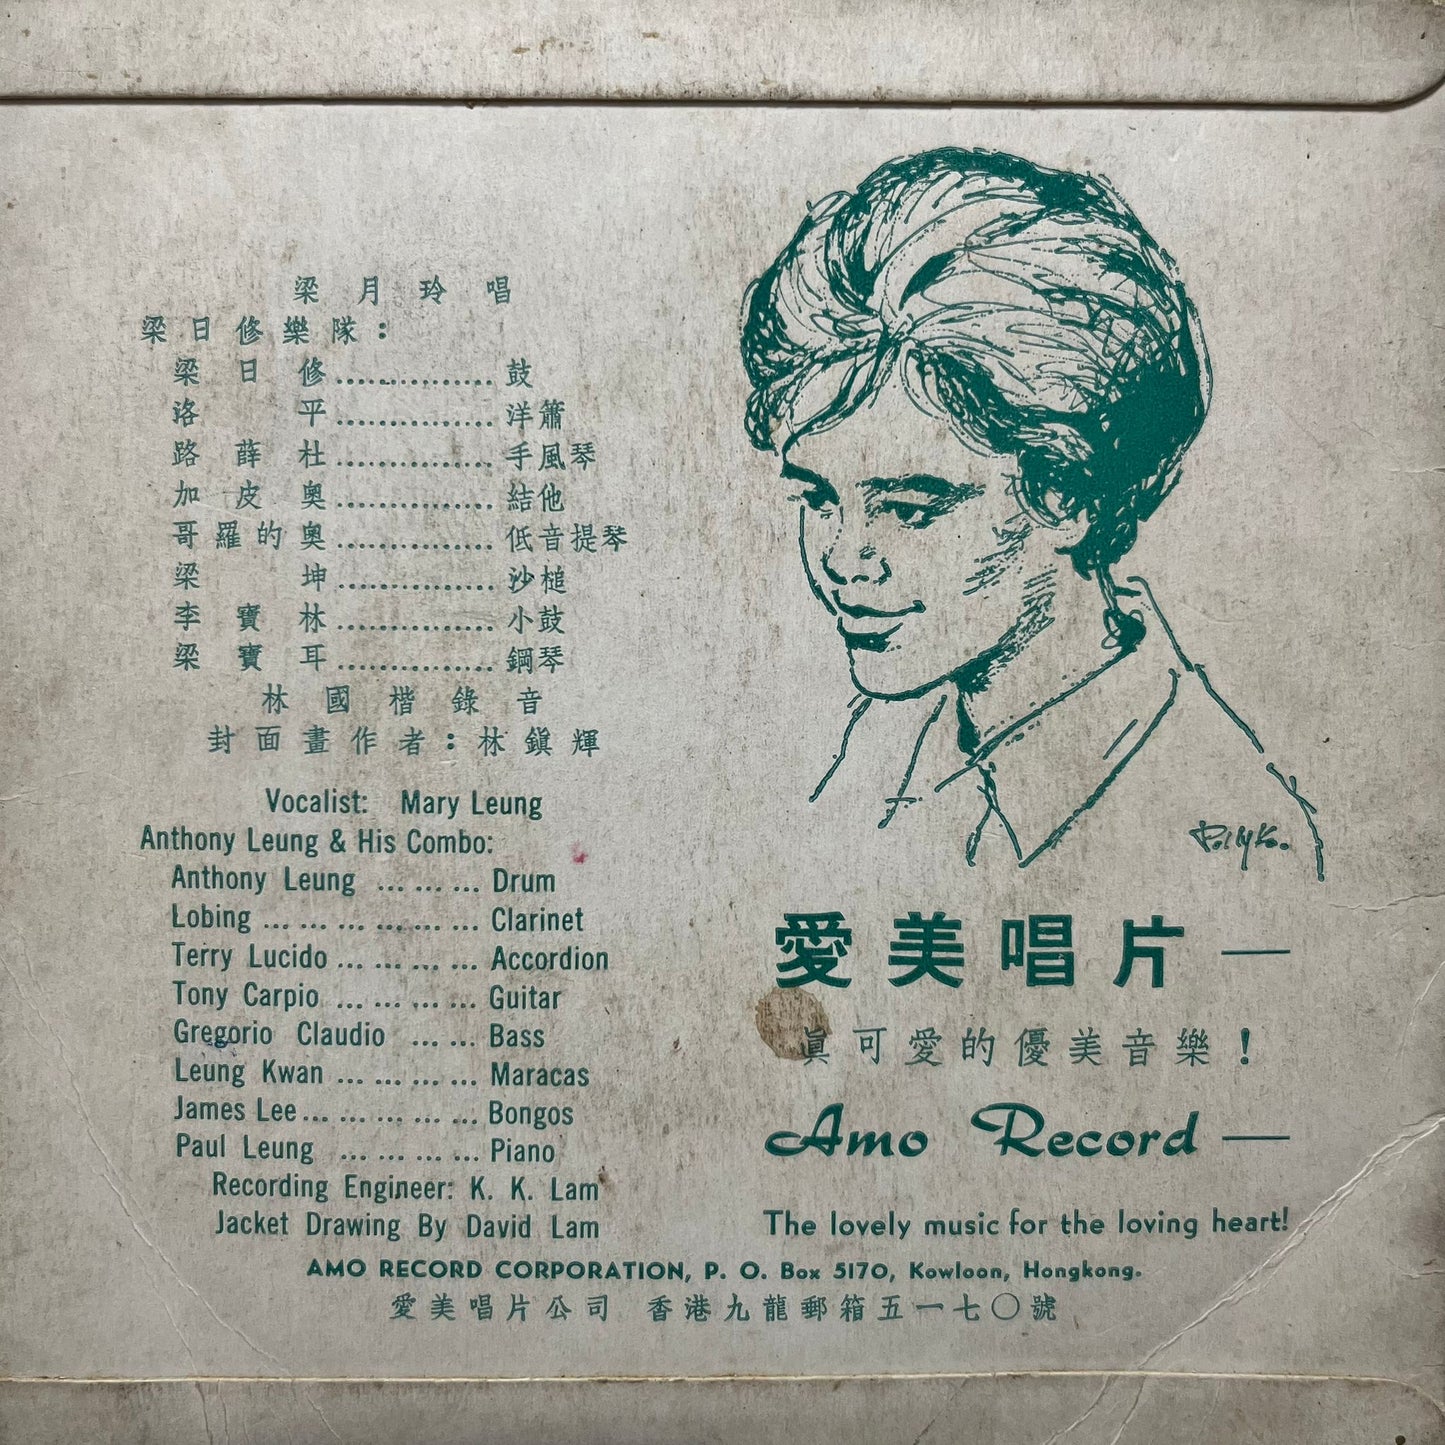 梁月玲唱
梁日修樂隊：
梁日修................鼓
洛平................洋簫
路薛杜................手風琴
加皮奧................結他
哥羅的奧................低音提琴
梁坤................沙槌
李寶林................小鼓
梁寶耳................鋼琴
林國楷錄音
封面畫作者：林鎭輝
Vocalist: Mary Leung
Anthony Leung & His Combo:
Anthony Leung ... ... ... Drum
Lobing ... ... ... ... ... ... Clarinet
Terry Lucido ... ... ... ... Accordion
Tony Carpio ... ... ... ... Guitar
Gregorio Claudio ... ... Bass
Leung Kwan ... ... ... ... Maracas
James Lee ... ... ... ... ... Bongos
Paul Leung ... ... ... ... Piano
Recording Engineer: K. K. Lam
Jacket Drawing By David Lam
PollyKo.
愛美唱片—
眞可愛的優美音樂！
Amo Record—
The lovely music for the loving heart!
AMO RECORD CORPORATION, P. O. Box 5170, Kowloon, Hongkong.
愛美唱片公司 香港九龍郵箱五一七〇號